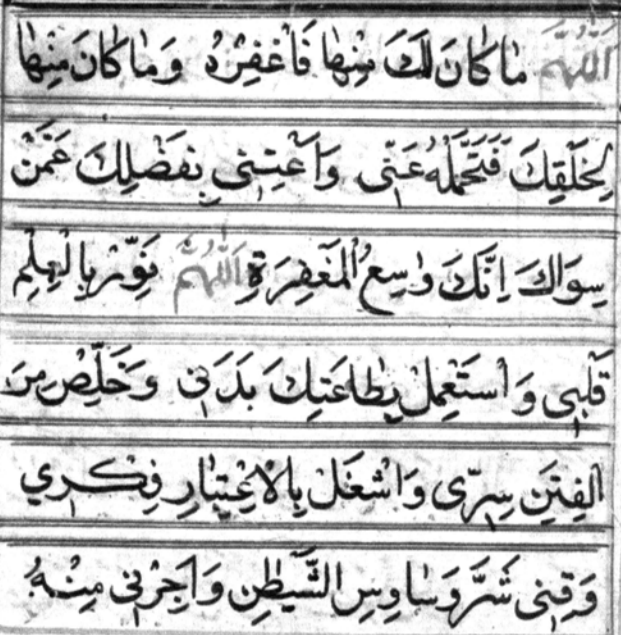 اَللّٰهُمَّ مَا كَانَ لَكَ مِنْهَا فَاغْفِرْهُ وَمَا كَانَ مِنْهَا
لِخَلْقِكَ فَتَحَمَّلْهُ عَنِّى وَاَغْنِنِى بِفَضْلِكَ عَمَّنْ
سِوَاكَ اِنَّكَ وَاسِعُ الْمَغْفِرَةِ اَللّٰهُمَّ نَوِّرْ بِالْعِلْمِ
قَلْبِى وَاسْتَعْمِلْ بِطَاعَتِكَ بَدَنِى وَخَلِّصْ مِنَ
الْفِتَنِ سِرِّى وَاشْغَلْ بِالْاِعْتِبَارِ فِكْرِي
وَقِنِى شَرَّ وَسَاوِسِ الشَّيْطٰنِ وَاَجِرْنِى مِنْهُ